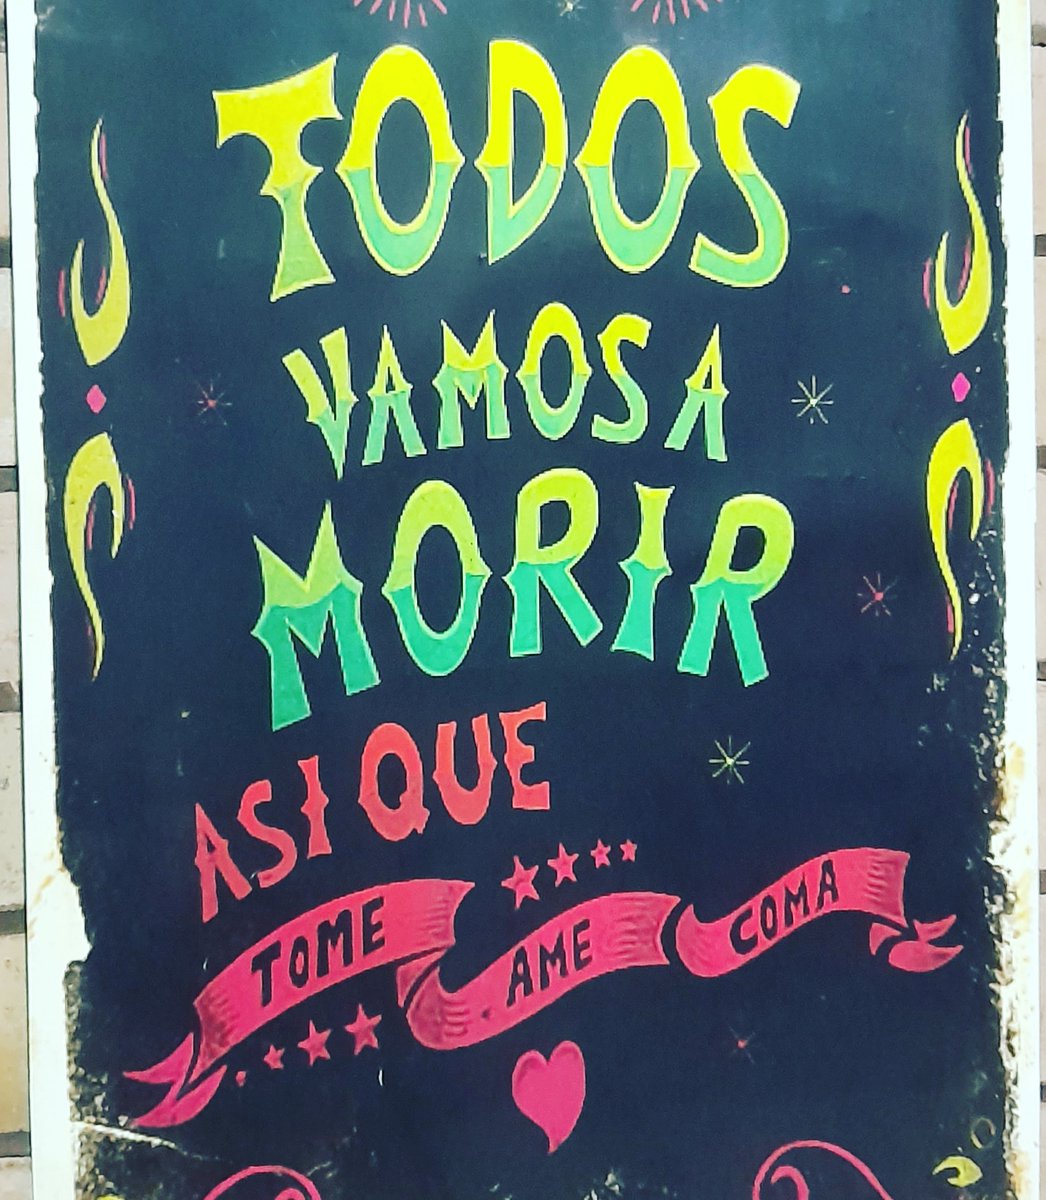 TODOS
VAMOS A
MORIR
ASI QUE
TOME AME COMA